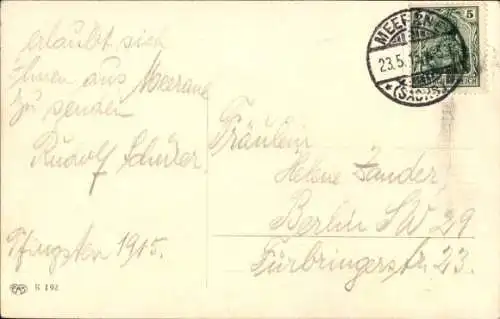 erlaubt sich
Ihnen aus Meerane
zu senden
Rudolf
Pfingsten 1915.
R 192
MEERANE
23.5.15
*(SACHS.
5
Fräulein
Helene Zander,
Berlin SW 29
Fürbringerstr. 23.